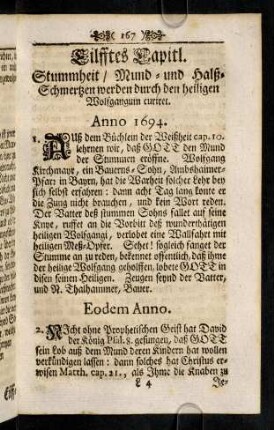 ( 167 )
Eilfftes Capitl.
Stummheit / Mund- und Halß-
Schmertzen werden durch den heiligen
Wolfgangum curiret.
Anno 1694.
1. Auß dem Büchlein der Weißheit cap. 10.
lehrnen wir, daß GOTT den Mund
der Stummen eröffne. Wolfgang
Kirchmayr, ein Baurens-Sohn, Ambshaimer-
Pfarr in Bayrn, hat die Warheit solcher Lehr bey
sich selbst erfahren: dann acht Tag lang konte er
die Zung nicht brauchen, und kein Wort reden.
Der Vatter deß stummen Sohns fallet auf seine
Knye, rueffet an die Vorbitt deß wunderthätigen
heiligen Wolfgangi, verlobet eine Wallfahrt mit
heiligen Meß-Opfer. Sehet! sogleich fanget der
Stumme an zu reden, bekennet offentlich, daß ihme
der heilige Wolfgang geholffen, lobete GOTT in
disen seinen Heiligen. Zeugen seynd der Vatter,
und N. Thalhammer, Bauer.
Eodem Anno.
2. Nicht ohne Prophetischen Geist hat David
der König Psal. 8. gesungen, daß GOTT
sein Lob auß dem Mund deren Kindern hat wollen
verkündigen lassen: dann solches hat Christus er-
wisen Matth. cap. 21., als Ihme die Knaben zu
L 4 Je-